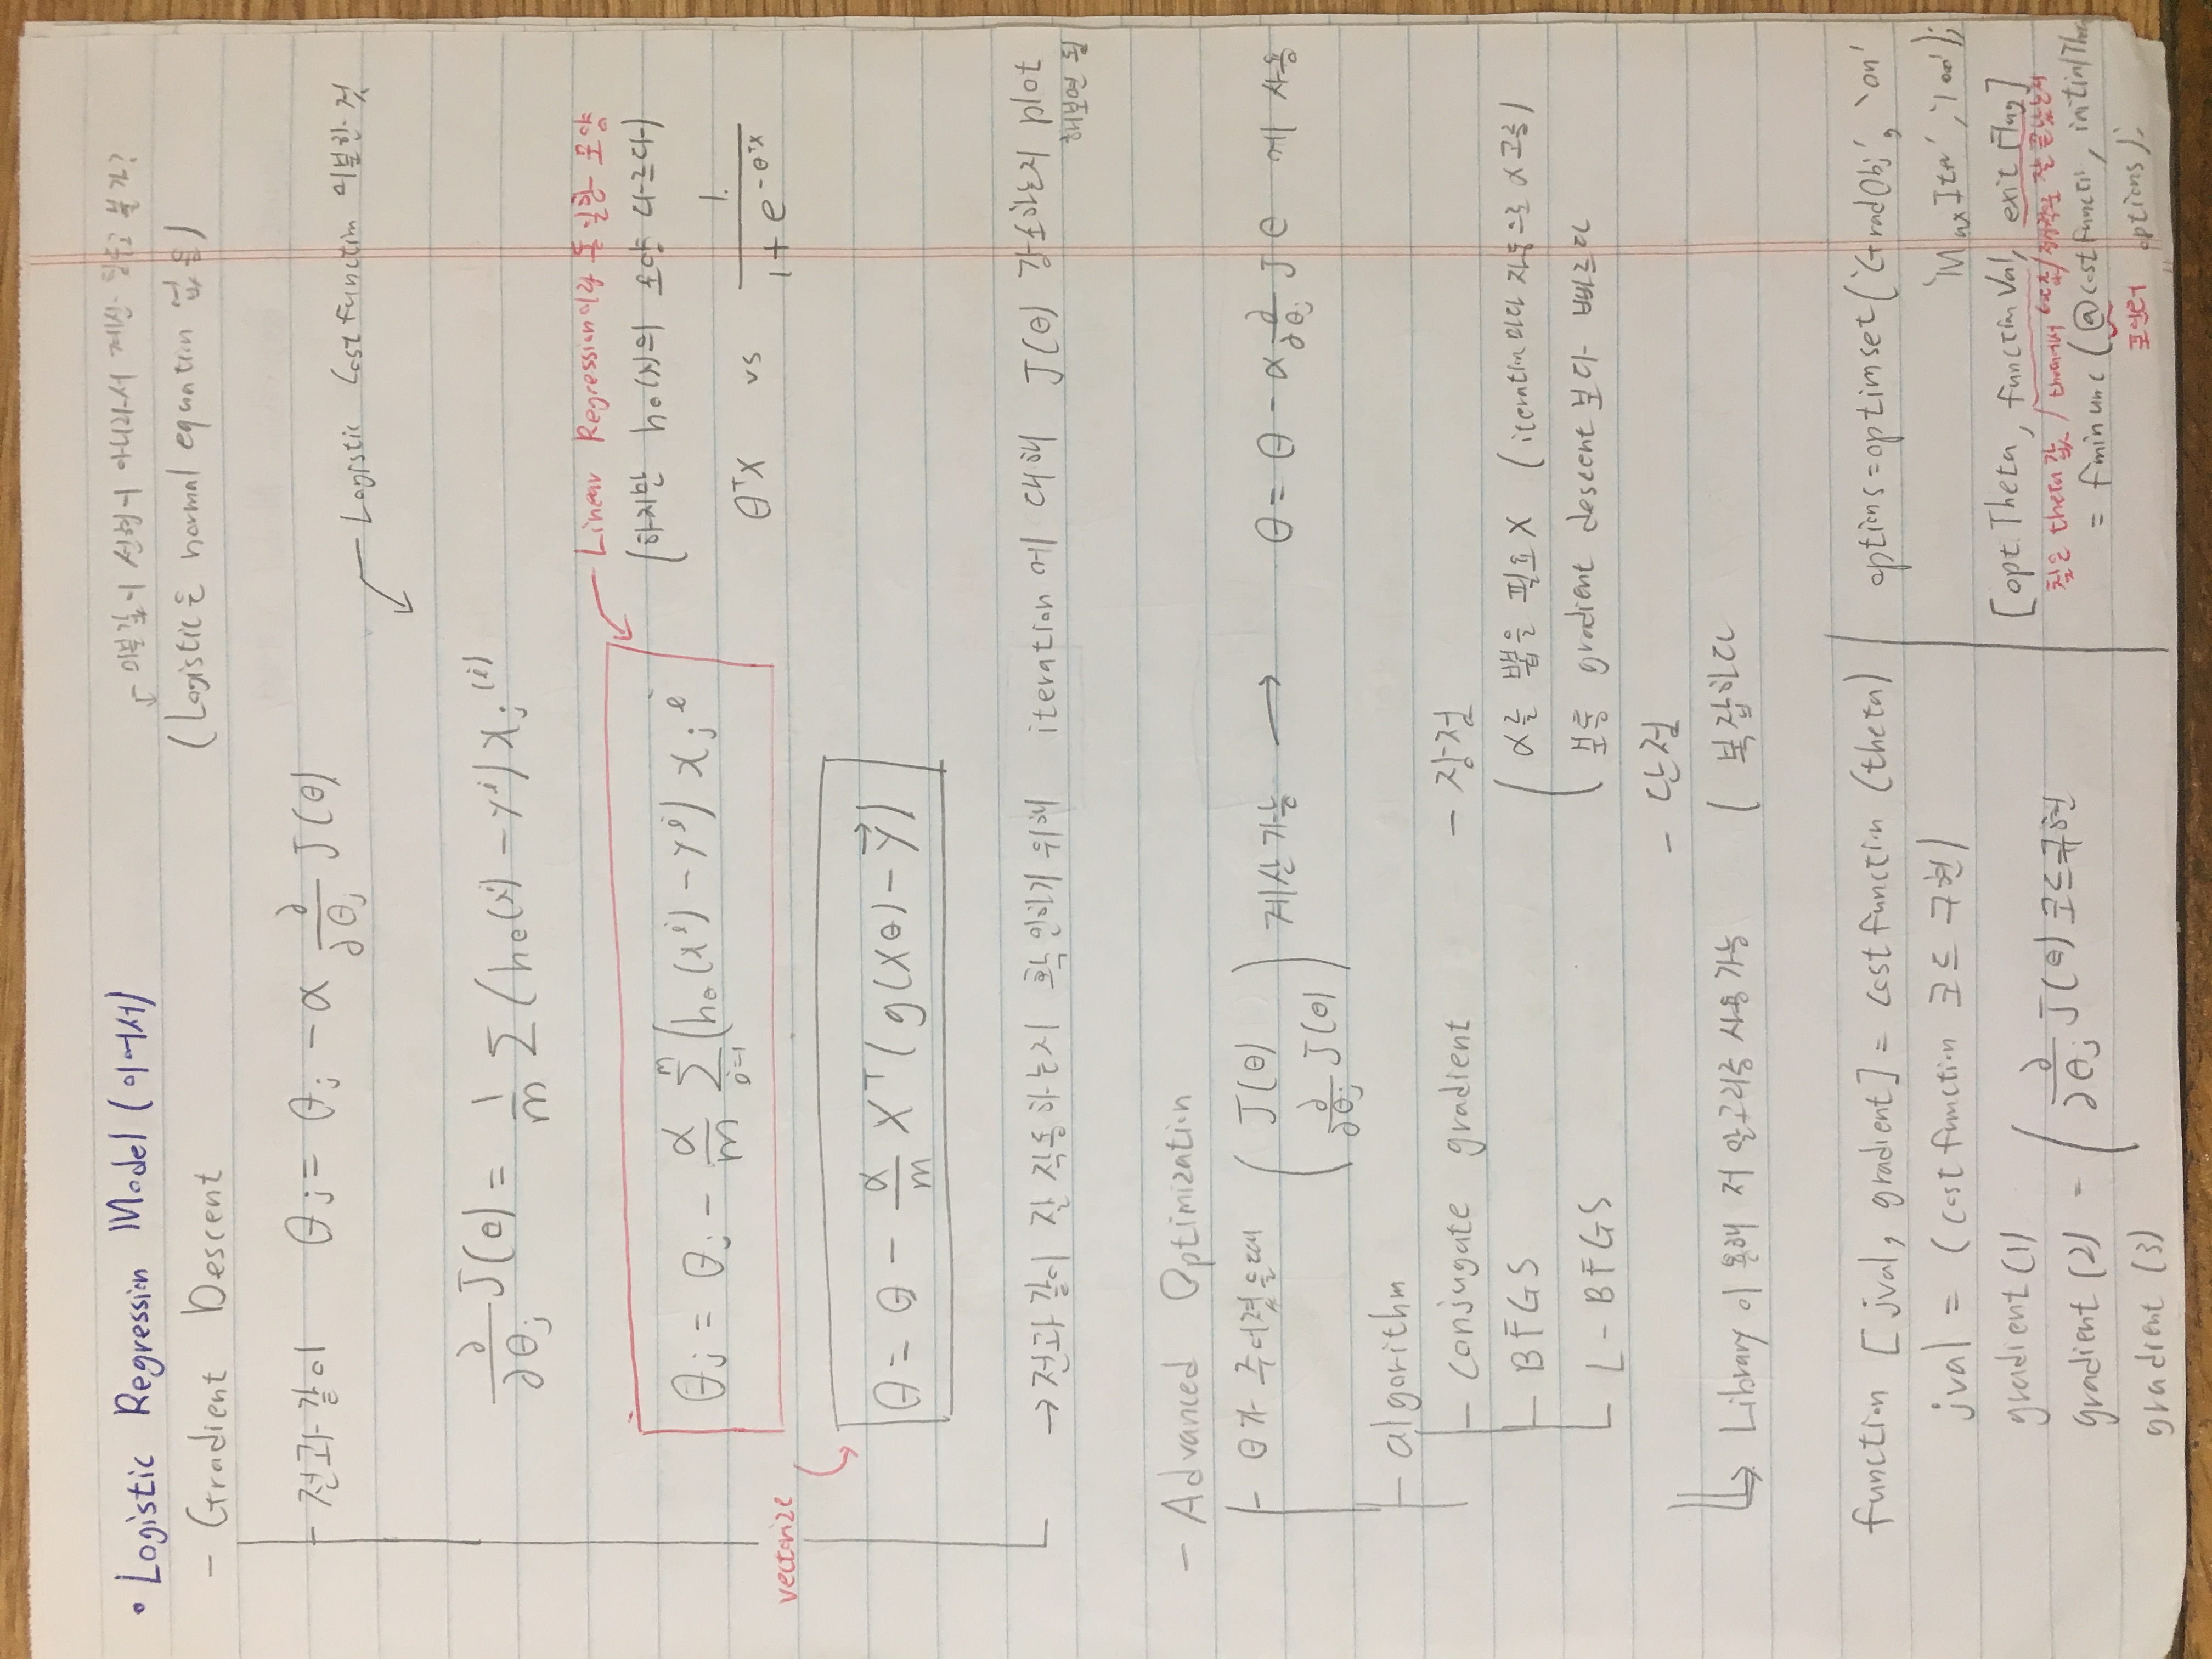 • Logistic Regression Model (이어서)
미분값이 선형이 아니라서 계산 불가?
(Logistic은 normal equation 없음)
- Gradient Descent
전과 같이 θj = θj - α ∂/∂θj J(θ)
Logistic Cost function 미분한 것
∂/∂θj J(θ) = 1/m Σ (hθ(x^i) - y^i) xj^(i)
Linear Regression이랑 동일한 모양
(하지만 hθ(x)의 모양 다르다)
θj = θj - α/m Σ_{i=1}^{m} (hθ(x^i) - y^i) xj^i
θᵀx vs 1/(1 + e^(-θᵀx))
vectorize
θ = θ - α/m Xᵀ (g(Xθ) - y⃗)
→ 전과 같이 잘 작동하는지 확인하기 위해 iteration에 대해 J(θ) 감소하는지 plot
해보면 됨
- Advanced Optimization
- θ가 주어졌을때 ( J(θ) ∂/∂θj J(θ) ) 계산 가능 → θ = θ - α ∂/∂θj J θ 에 사용
- algorithm
- conjugate gradient
- BFGS
- L-BFGS
- 장점
α를 뽑을 필요 X (iteration마다 자동으로 α 고름)
보통 gradient descent보다 빠르다
- 단점
복잡하다
Library 이용해 저 알고리즘 사용 가능
function [jval, gradient] = costfunction (theta)
jval = (costfunction 코드 구현)
gradient (1)
gradient (2) = ( ∂/∂θj J(θ) 코드구현
gradient (3)
options = optimset('GradObj', 'on'
'MaxIter', '100');
[optTheta, functionVal, exitFlag]
찾은 theta 값 / theta에서 cost값 / 잘 끝났는지
= fminunc (@costfuncti, initialThe
포인터 options);